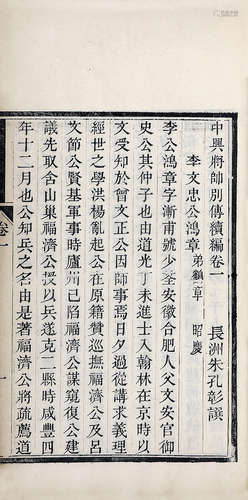 中興將帥別傳續編卷一
長洲朱孔彰譔
李文忠公鴻章 弟鶴章 昭慶
李公鴻章字漸甫號少荃安徽合肥人父文安官御
史公其仲子也由道光丁未進士入翰林在京時以
文受知於曾文正公因師事焉日夕過從講求義理
經世之學洪楊亂起公在原籍贊巡撫福濟公及呂
文節公賢基軍事時廬州已陷福濟公謀窺復公建
議先取含山巢縣福濟公授以兵遂克二縣時咸豐四
年十二月也公知兵之名由是著福濟公將疏薦道
卷一